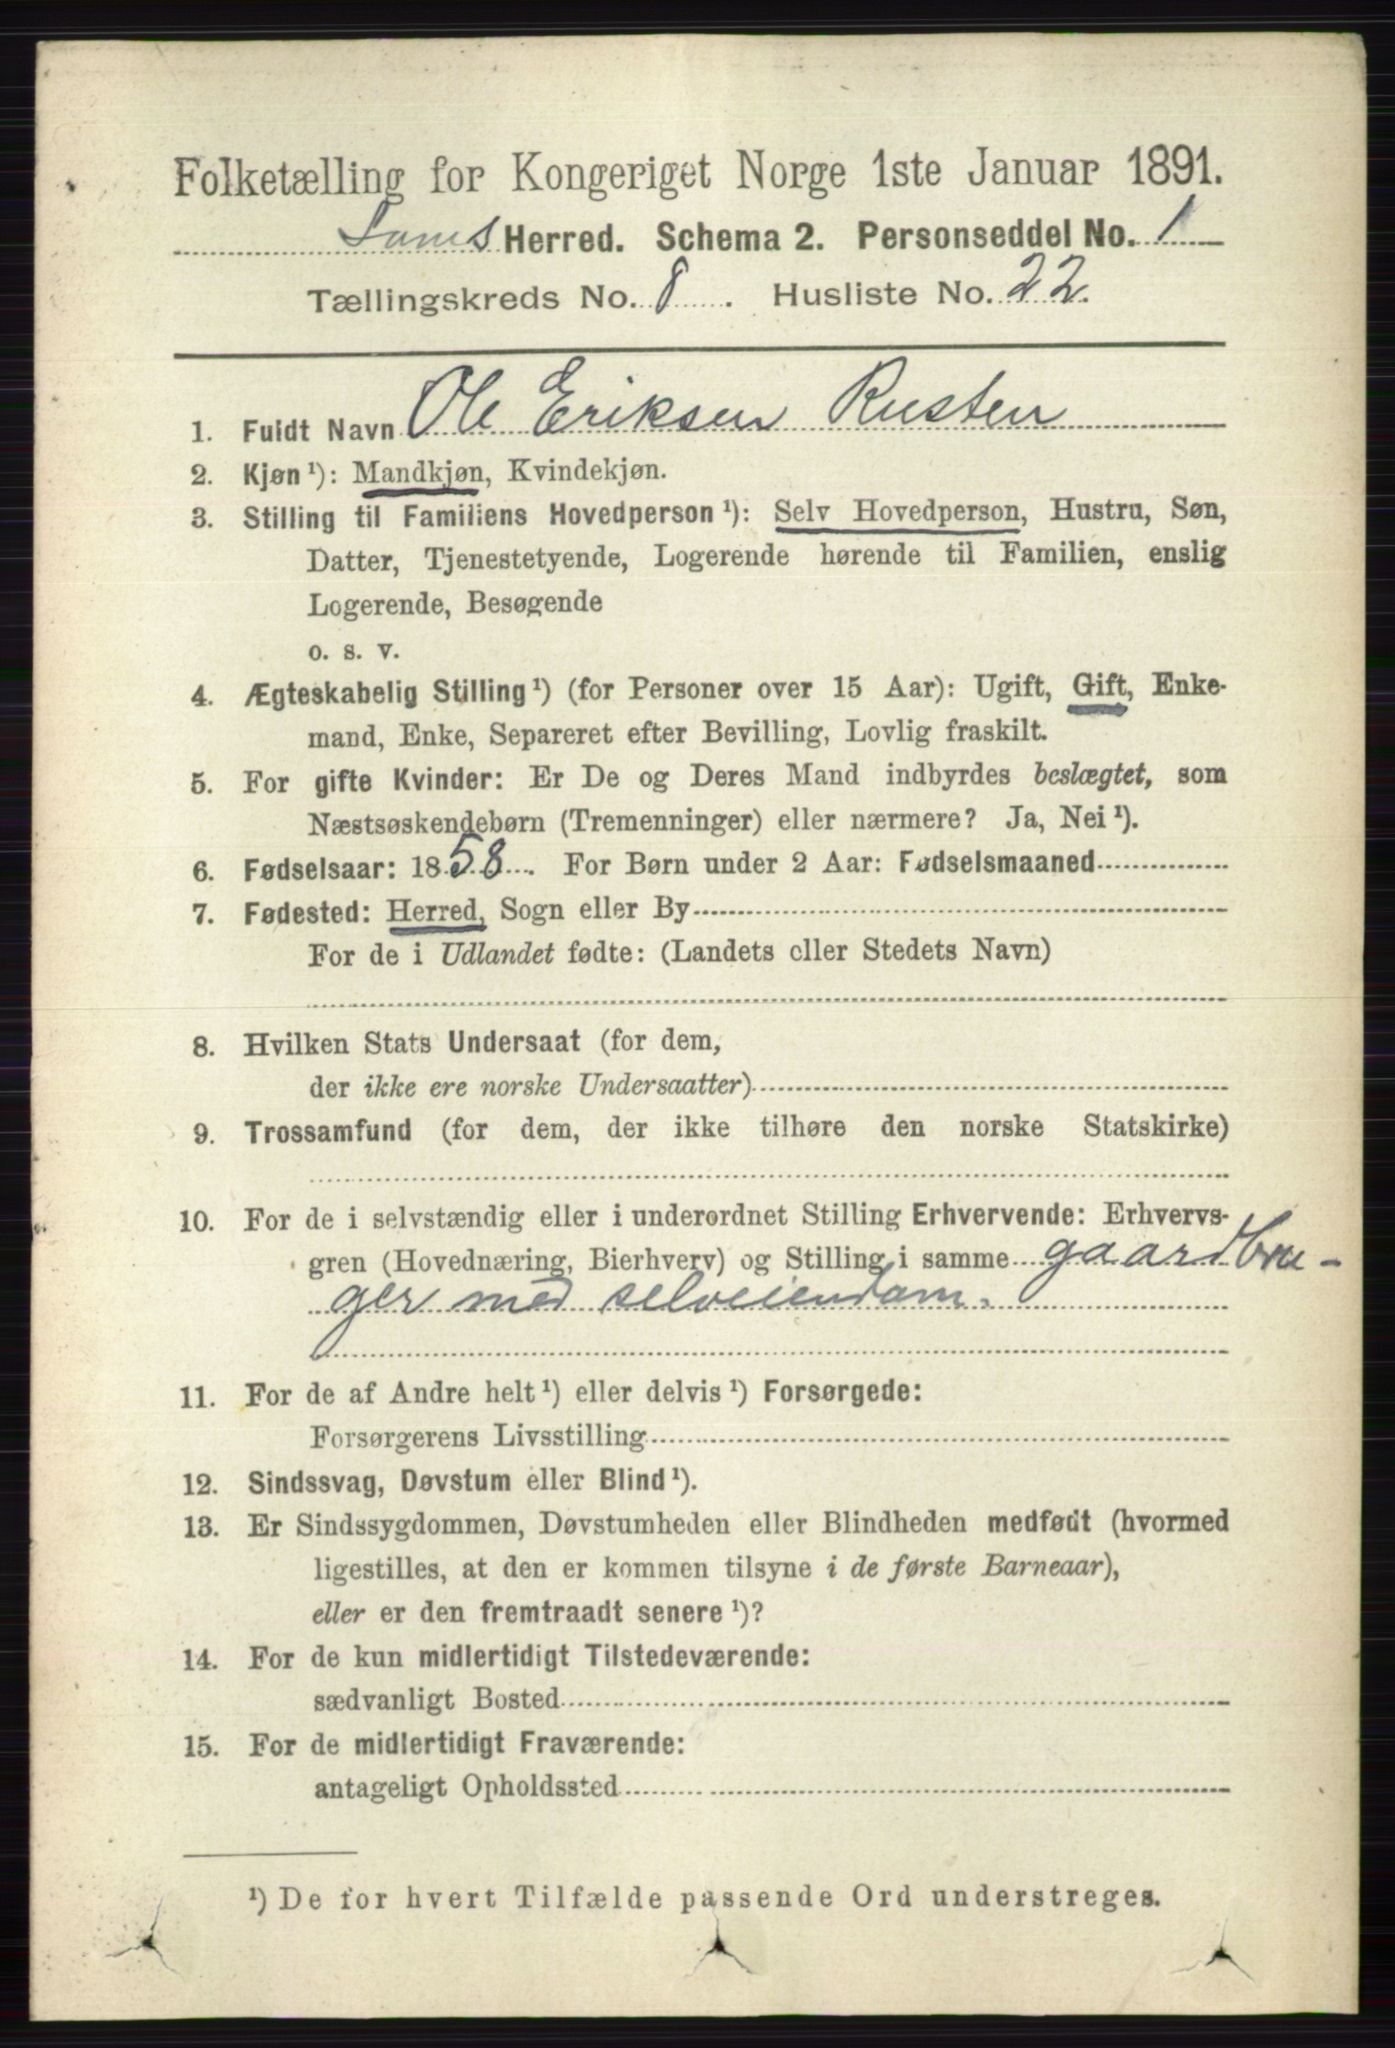 Folketælling for Kongeriget Norge 1ste Januar 1891.
Loms Herred. Schema 2. Personseddel No. 1
Tællingskreds No. 8. Husliste No. 22.
1. Fuldt Navn Ole Eriksen Rusten
2. Kjøn ¹): Mandkjøn, Kvindekjøn.
3. Stilling til Familiens Hovedperson ¹): Selv Hovedperson, Hustru, Søn,
Datter, Tjenestetyende, Logerende hørende til Familien, enslig
Logerende, Besøgende
o. s. v.
4. Ægteskabelig Stilling ¹) (for Personer over 15 Aar): Ugift, Gift, Enke-
mand, Enke, Separeret efter Bevilling, Lovlig fraskilt.
5. For gifte Kvinder: Er De og Deres Mand indbyrdes beslægtet, som
Næstsøskendebørn (Tremenninger) eller nærmere? Ja, Nei ¹).
6. Fødselsaar: 1858. For Børn under 2 Aar: Fødselsmaaned
7. Fødested: Herred, Sogn eller By
For de i Udlandet fødte: (Landets eller Stedets Navn)
8. Hvilken Stats Undersaat (for dem,
der ikke ere norske Undersaatter)
9. Trossamfund (for dem, der ikke tilhøre den norske Statskirke)
10. For de i selvstændig eller i underordnet Stilling Erhvervende: Erhvervs-
gren (Hovednæring, Bierhverv) og Stilling i samme gaardbru-
ger med selveiendom.
11. For de af Andre helt ¹) eller delvis ¹) Forsørgede:
Forsørgerens Livsstilling
12. Sindssvag, Døvstum eller Blind ¹).
13. Er Sindssygdommen, Døvstumheden eller Blindheden medfødt (hvormed
ligestilles, at den er kommen tilsyne i de første Barneaar),
eller er den fremtraadt senere ¹)?
14. For de kun midlertidigt Tilstedeværende:
sædvanligt Bosted
15. For de midlertidigt Fraværende:
antageligt Opholdssted
¹) De for hvert Tilfælde passende Ord understreges.